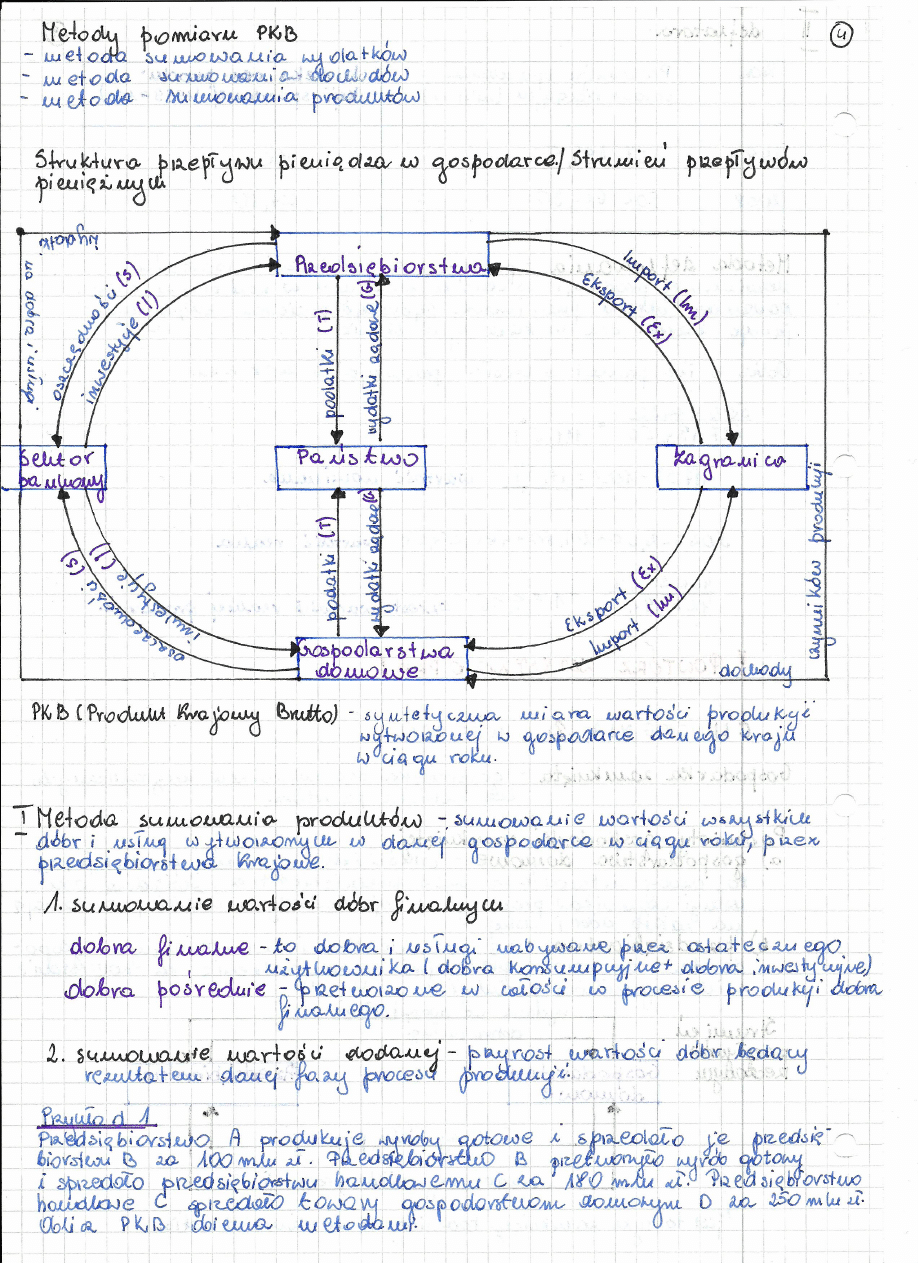 4
Metody pomiaru PKB
- metoda sumowania wydatków
- metoda sumowania dochodów
- metoda - sumowania produktów
Struktura przepływu pieniądza w gospodarce./ Strumień przepływów
pieniężnych
wydatki
na dobra i usługi
Przedsiębiorstwa
oszczędności (S)
inwestycje (I)
podatki (T)
wydatki rządowe (G)
Import (Im)
Eksport (Ex)
Sektor
bankowy
Państwo
Zagranica
oszczędności (S)
inwestycje (I)
podatki (T)
wydatki rządowe (G)
Eksport (Ex)
Import (Im)
czynników produkcji
Gospodarstwa
domowe
dochody
PKB (Produkt Krajowy Brutto) - syntetyczna miara wartości produkcji
wytworzonej w gospodarce danego kraju
w ciągu roku.
I Metoda sumowania produktów - sumowanie wartości wszystkich
dóbr i usług wytworzonych w danej gospodarce w ciągu roku, przez
przedsiębiorstwa krajowe.
1. sumowanie wartości dóbr finalnych
dobra finalne - to dobra i usługi nabywane przez ostatecznego
użytkownika (dobra konsumpcyjne + dobra inwestycyjne)
dobra pośrednie - przetworzone w całości w procesie produkcji dobra
finalnego.
2. sumowanie wartości dodanej - przyrost wartości dóbr będący
rezultatem danej fazy procesu produkcji.
Przykład 1
Przedsiębiorstwo A produkuje wyroby gotowe i sprzedało je przedsię-
biorstwu B za 100 mln zł. Przedsiębiorstwo B przetworzyło wyrób gotowy
i sprzedało przedsiębiorstwu handlowemu C za 180 mln zł. Przedsiębiorstwo
handlowe C sprzedało towary gospodarstwom domowym D za 250 mln zł.
Oblicz PKB dwiema metodami.